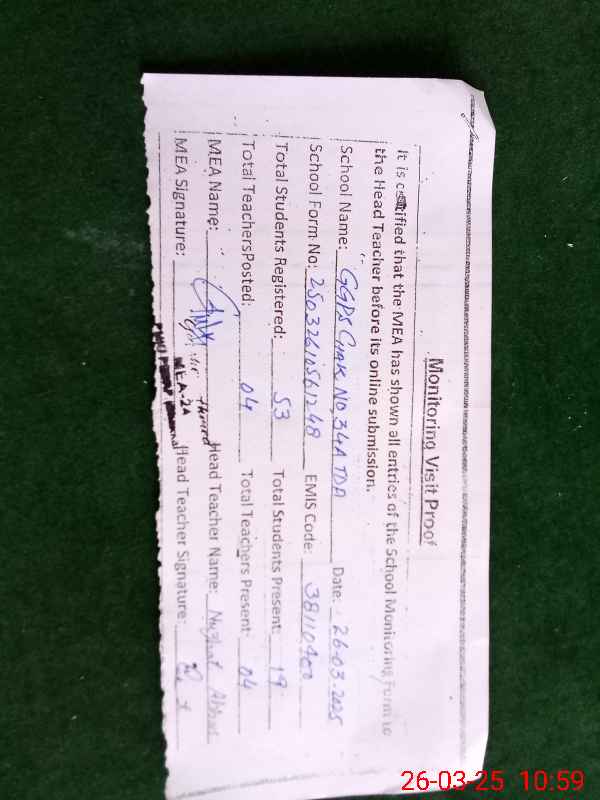 Monitoring Visit Proof
It is certified that the MEA has shown all entries of the School Monitoring Form to
the Head Teacher before its online submission.
School Name: GGPS CHAK NO, 34A TDA Date: 26-03-2025
School Form No: 250326110561248 EMIS Code: 38110400
Total Students Registered: 53 Total Students Present: 19
Total TeachersPosted: 04 Total Teachers Present: 04
MEA Name: Head Teacher Name: Nuzhat Abbas
MEA Signature: MEA-24 Head Teacher Signature:
26-03-25 10:59